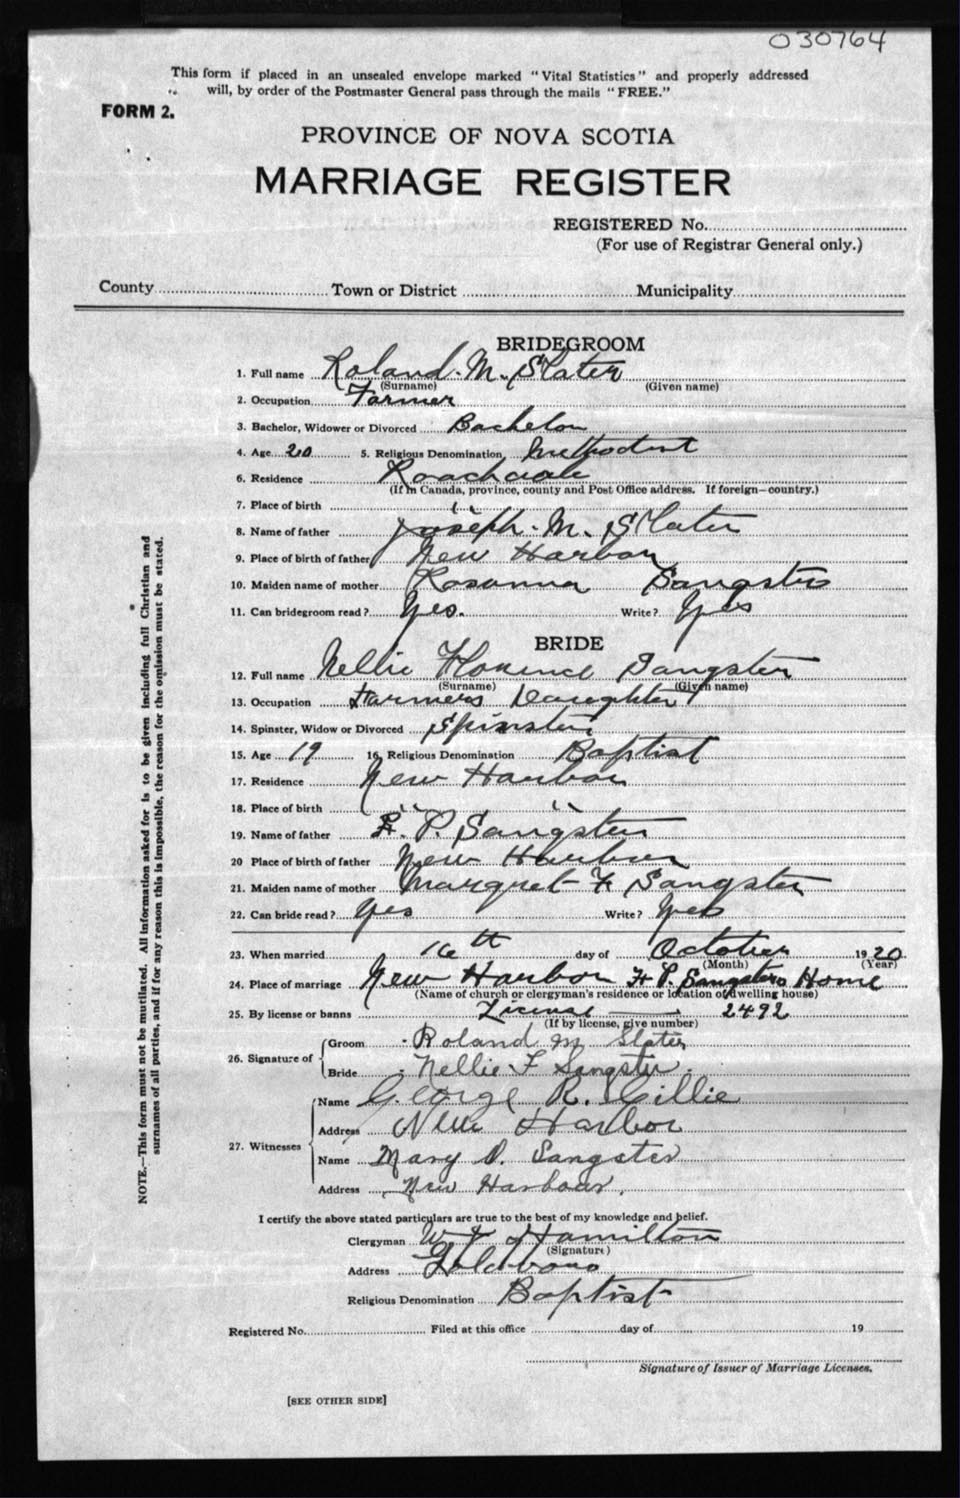 030764
This form if placed in an unsealed envelope marked "Vital Statistics" and properly addressed
will, by order of the Postmaster General pass through the mails "FREE."
FORM 2.
PROVINCE OF NOVA SCOTIA
MARRIAGE REGISTER
REGISTERED No.
(For use of Registrar General only.)
County Town or District Municipality
BRIDEGROOM
1. Full name Roland M. Slater
(Surname) (Given name)
2. Occupation Farmer
3. Bachelor, Widower or Divorced Bachelor
4. Age 20 5. Religious Denomination Methodist
6. Residence Roachvale
(If in Canada, province, county and Post Office address. If foreign—country.)
7. Place of birth " "
8. Name of father Joseph. M. Slater
9. Place of birth of father New Harbor
10. Maiden name of mother Rosanna Sangster
11. Can bridegroom read? Yes. Write? Yes
BRIDE
12. Full name Nellie Florence Sangster
(Surname) (Given name)
13. Occupation Farmers Daughter
14. Spinster, Widow or Divorced Spinster
15. Age 19 16. Religious Denomination Baptist
17. Residence New Harbor
18. Place of birth " "
19. Name of father P. Sangster
20 Place of birth of father New Harbor
21. Maiden name of mother Margret F Sangster
22. Can bride read? Yes Write? Yes
23. When married 16th day of October 1920
(Month) (Year)
24. Place of marriage New Harbor F. P. Sangsters Home
(Name of church or clergyman's residence or location of dwelling house)
25. By license or banns License — 2492
(If by license, give number)
26. Signature of
Groom Roland M Slater
Bride Nellie F Sangster
27. Witnesses
Name George R. Gillie
Address New Harbor
Name Mary D. Sangster
Address New Harbour.
I certify the above stated particulars are true to the best of my knowledge and belief.
Clergyman Hamilton
(Signature)
Address Goldboro
Religious Denomination Baptist
Registered No. Filed at this office day of 19
Signature of Issuer of Marriage Licenses.
[SEE OTHER SIDE]
NOTE.—This form must not be mutilated. All information asked for is to be given including full Christian and
surnames of all parties, and if for any reason this is impossible, the reason for the omission must be stated.